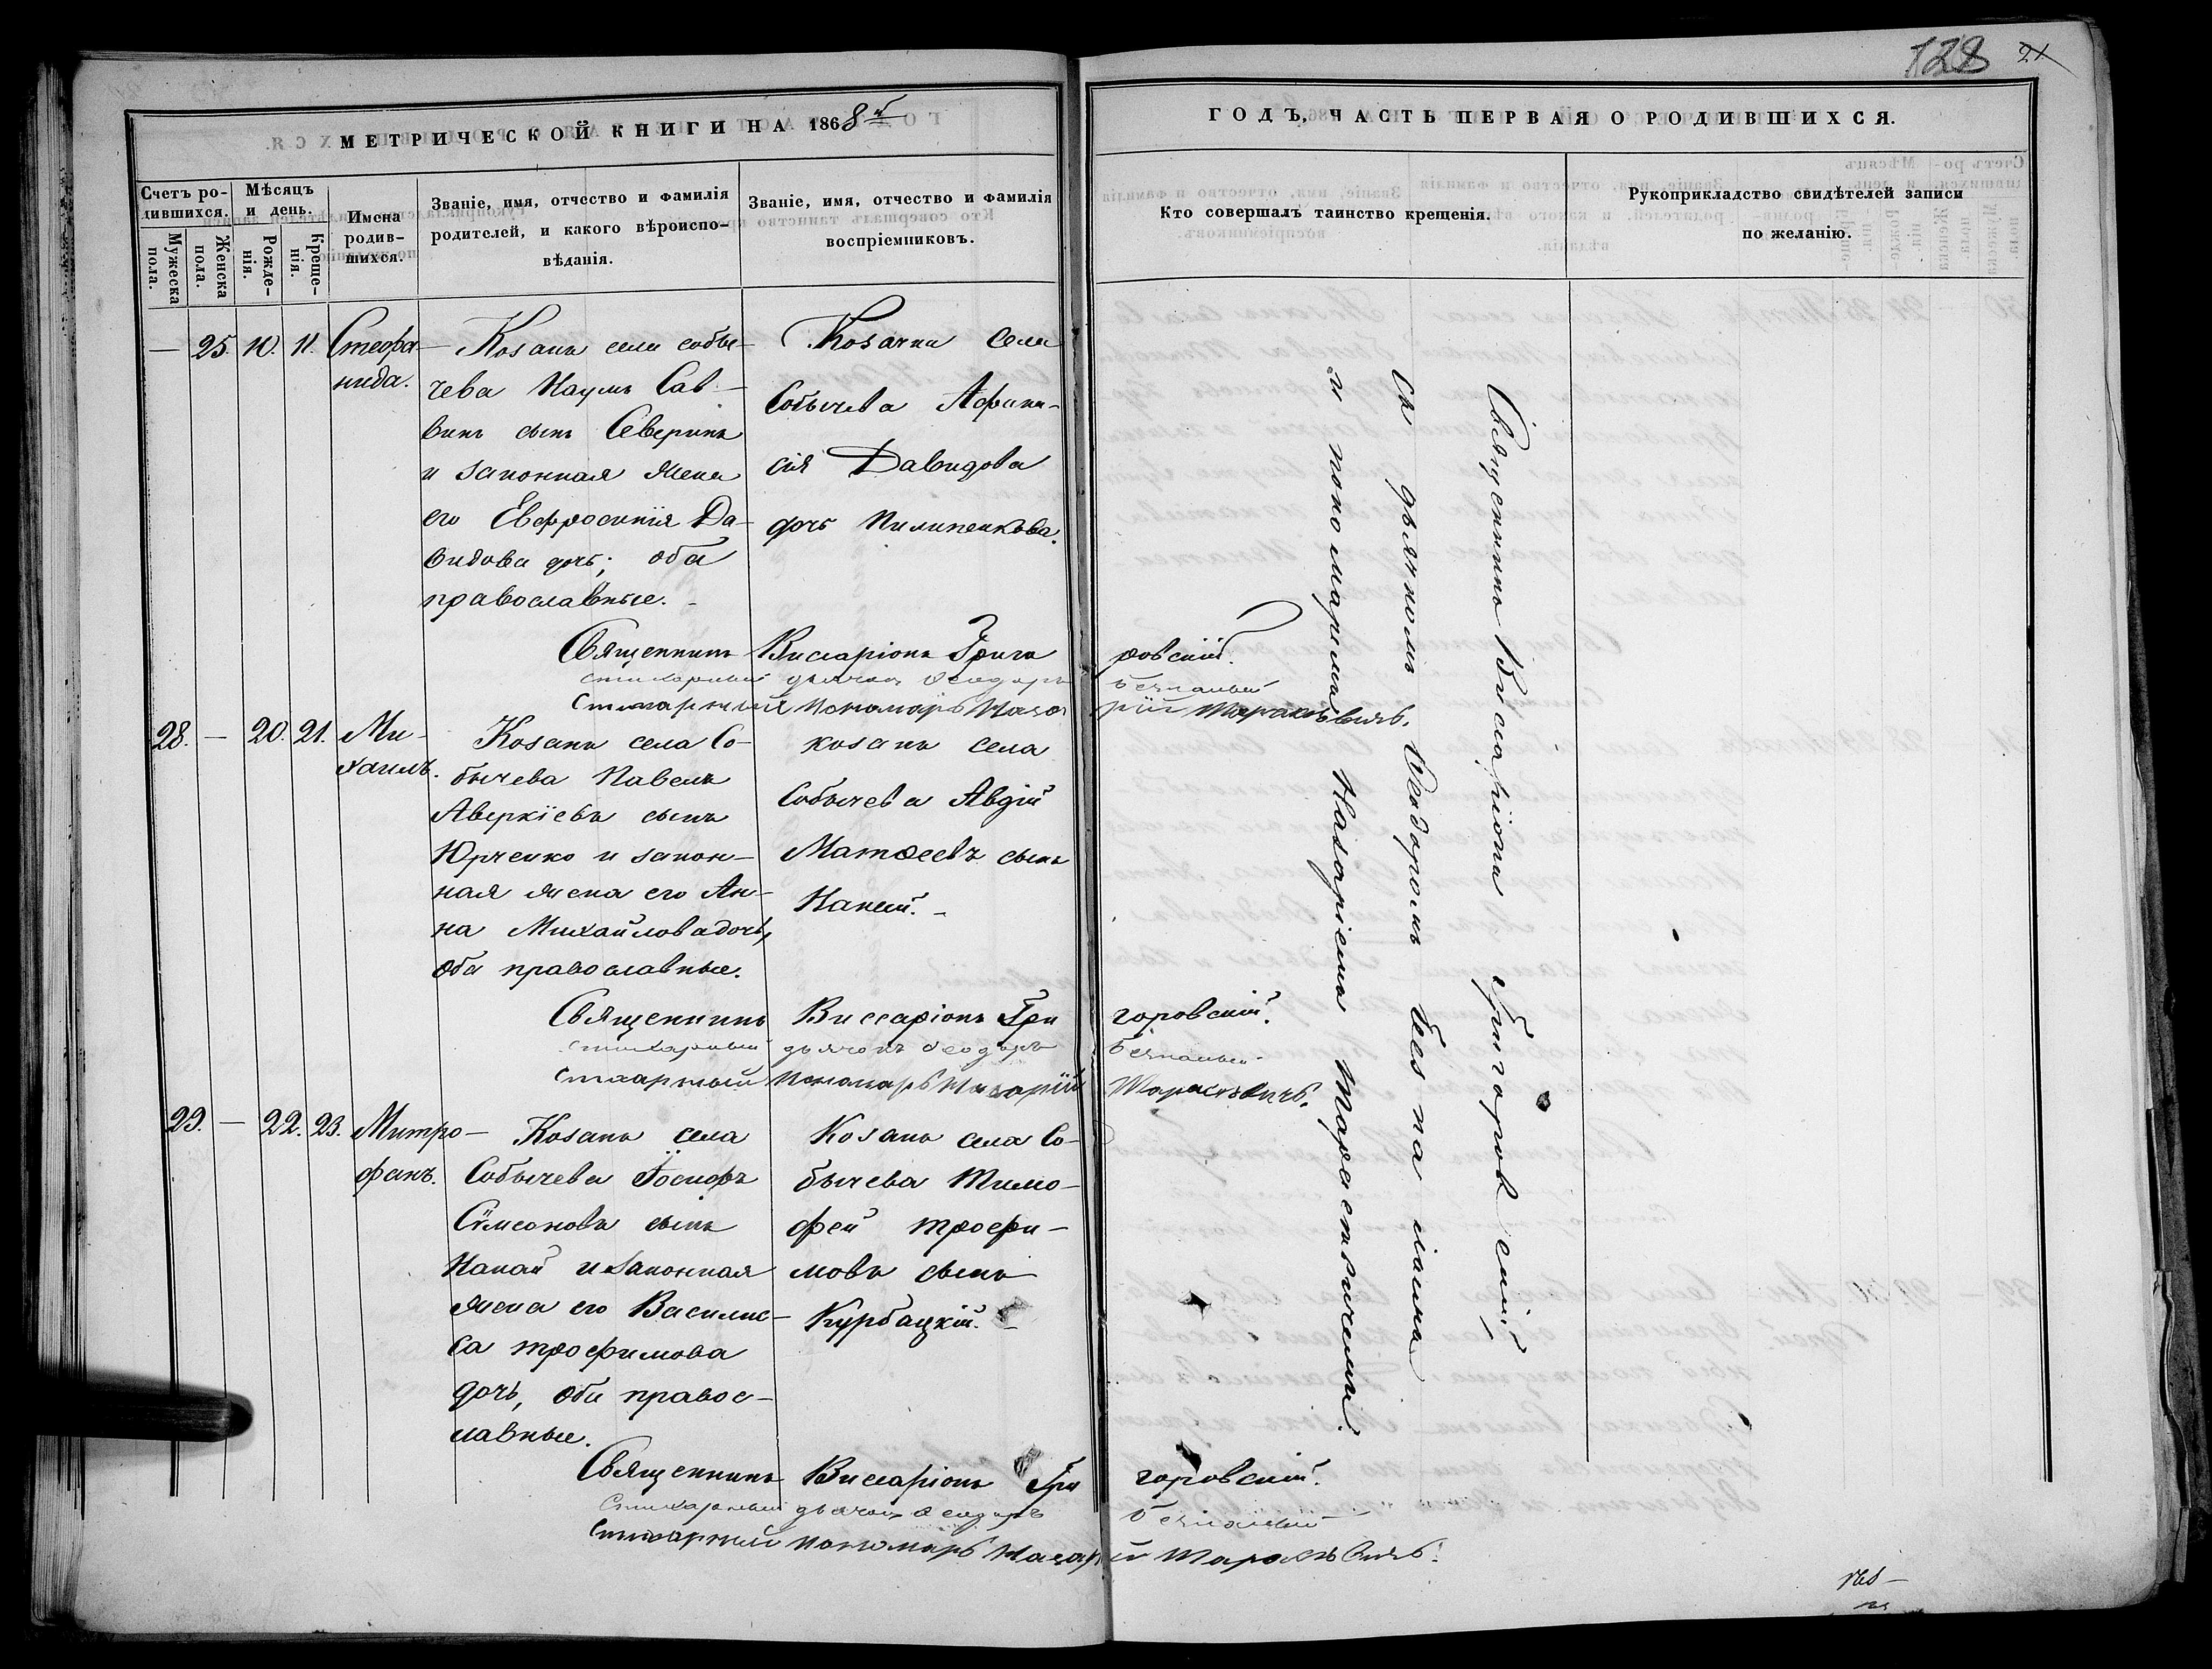 128 21
МЕТРИЧЕСКОЙ КНИГИ НА 1868й
ГОДЪ, ЧАСТЬ ПЕРВАЯ О РОДИВШИХСЯ.
Счетъ ро-
дившихся.
Мужеска
пола.
Женска
пола.
Мѣсяцъ
и день.
Рожде-
нія.
Креще-
нія.
Имена
родив-
шихся.
Званіе, имя, отчество и фамилія
родителей, и какого вѣроиспо-
вѣданія.
Званіе, имя, отчество и фамилія
воспріемниковъ.
Кто совершалъ таинство крещенія.
Рукоприкладство свидѣтелей записи
по желанію.
— 25. 10. 11. Стефа-
нида.
Козакъ села Собы-
чева Наумъ Сав-
винъ сынъ Северинъ
и законная жена
его Евфросинія Да-
видова дочь; оба
православные.
Козачка села
Собычева Афана-
сія Давидова
дочь Пилипенкова.
Священникъ Виссаріонъ Григоровскій.
Стихарный дьячокъ Ѳеодоръ
Стихарный Пономарь Назарій Тарасѣвичъ.
28. — 20. 21. Ми-
хаилъ.
Козакъ села Со-
бычева Павелъ
Аверкіевъ сынъ
Юрченко и закон-
ная жена его Ан-
на Михайлова дочь,
оба православные.
козакъ села
Собычева Авдій
Матѳеевъ сынъ
Священникъ Виссаріонъ Григоровскій.
Стихарный дьячокъ Ѳеодоръ
Стихарный Пономарь Назарій Тарасѣвичъ.
29. — 22. 23. Митро-
фанъ.
Козакъ села
Собычева Іосифъ
Сѵмеоновъ сынъ
и законная
жена его Василис-
са Трофимова
дочь, оба правос-
лавные.
Козакъ села Со-
бычева Тимо-
фей Трофи-
мовъ сынъ
Курбацкій.
Священникъ Виссаріонъ Григоровскій.
Стихарный дьячокъ Ѳеодоръ
Стихарный Пономарь Назарій Тарасѣвичъ.
Священникъ Виссаріонъ Григоровскій,
съ дьячкомъ Ѳеодоромъ
и пономаремъ Назаріемъ Тарасѣвичемъ.